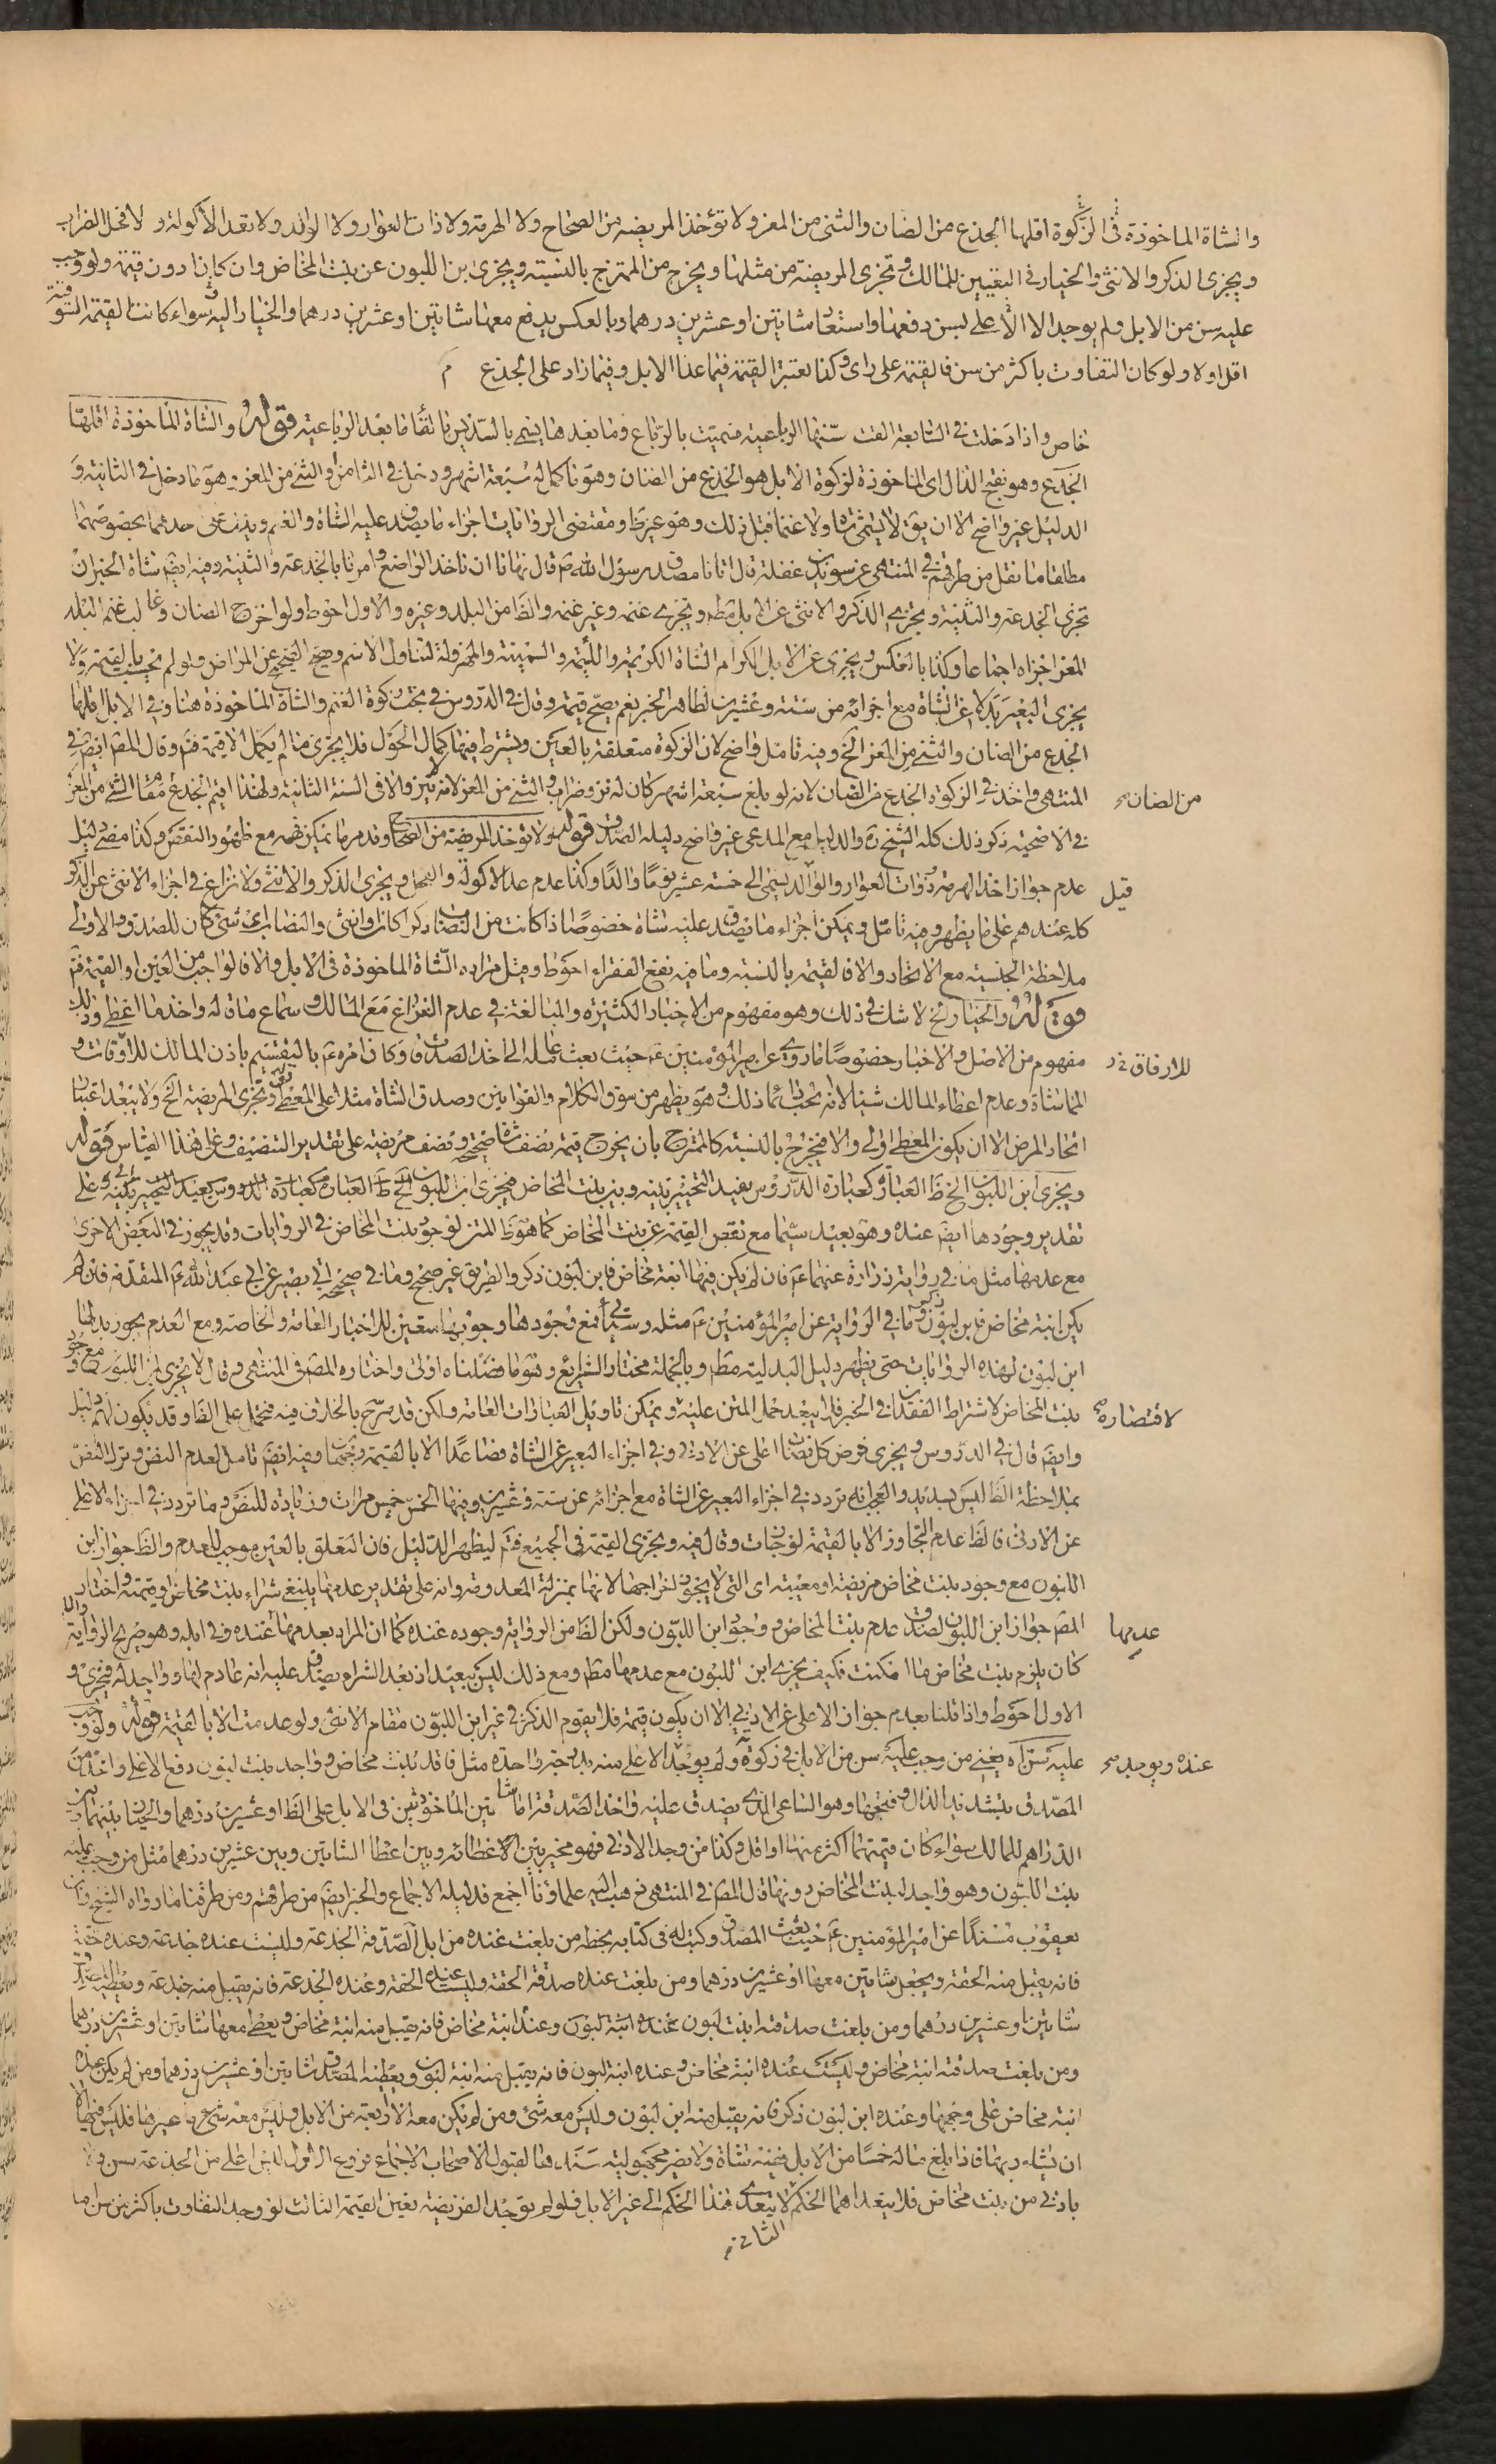 والشاة الماخوذة فى الزكوة اقلها الجذع من الضان والثنى من المعز ولا تؤخذ المريضه من الصحاح ولا الهرمة ولا ذات العوار ولا الوالد ولا تعد الأكولة ولا فحل الضراب
ويجزى الذكر والانثى والخيار فى التعيين للمالك وتجزى المريضة من مثلها ويخرج من الممتزج بالنسبة ويجزى بن اللبون عن بنت المخاض وان كان ادون قيمة ولو وجب
عليه سن من الابل ولم يوجد الا الاعلى بسن دفعها واستعاد شاتين او عشرين درهما وبالعكس يدفع معها شاتين او عشرين درهما والخيار اليه سواء كانت القيمة السوقية
اقل اولا ولو كان التفاوت باكثر من سن فالقيمة على راى وكذا يعتبر القيمة فيما عدا الابل وفيما زاد على الجذع م
خاص واذا دخلت فى السابعة القت سنها الرباعية فسميت بالرباع وما بعدها يسمى بالسديس بالقاء ما بعد الرباعية قوله والشاة الماخوذة اقلها
الجذع وهو بفتح الذال اى الماخوذة لزكوة الابل هو الجذع من الضان وهو ما كمل له سبعة اشهر ودخل فى الثامن والثنى من المعز وهو ما دخل فى الثانية و
الدليل غير واضح الا ان يق لا يسمى شاة ولا غنما قبل ذلك وهو غير ظ ومقتضى الروايات اجزاء ما يصدق عليه الشاة والغنم ويدل على احدهما بخصوصهما
مطلقا ما نقل من طرقهم فى المنتهى عن سويد بن غفلة قال اتانا مصدق رسول الله ص قال نهانا ان ناخذ الراضع وامرنا بالجذعة والثنية وفيه ايضا شاة الجبران
تجزى الجذعة والثنية ويجزى الذكر والانثى عن الابل مطلقا وتجزى غنمه وغير غنمه والظ من البلد وغيره والاول احوط ولو اخرج الضان وغالب غنم البلد
المعز اجزاه اجماعا وكذا بالعكس ويجزى عن الابل الكرام الشاة الكريمة واللئيمة والسمينة والمهزولة لتناول الاسم وصح الصحيح عن المراض ولو لم تحسب بالقيمة ولا
يجزى البعير بدلا عن الشاة مع اجزائه من ستة وعشرين لظاهر الخبر نعم يصح قيمة وقال فى الدروس فى بحث زكوة الغنم والشاة الماخوذة هنا وفى الابل اقلها
الجذع من الضان والثنى من المعز الخ وفيه تامل واضح لان الزكوة متعلقة بالعين ويشترط فيها كمال الحول فلا يجزى ما لم يكمل الا قيمة فتم وقال المص ايضا فى
المنتهى واخذ فى الزكوة الجذع من الضان لانه لو بلغ سبعة اشهر كان له نزو وضراب والثنى من المعز لانه لا ينزو الا فى السنة الثانية ولهذا اقيم الجذع مقام الثنى من المعز
من الضان صح
فى الاضحية ذكر ذلك كله الشيخ ره والدليل مع المدعى غير واضح دليله الصدق قوله ولا تؤخذ المريضة من الصحاح وقد مر ما يمكن فهمه مع ظهور النقص وكذا مضى دليل
عدم جواز اخذ الهرمة وذوات العوار والوالد يسمى الى خمسة عشر يوما والدا وكذا عدم عد الاكولة والفحل ويجزى الذكر والانثى ولا نزاع فى اجزاء الانثى عن الذكر
قيل
كله عندهم على ما يظهر وفيه تامل ويمكن اجزاء ما يصدق عليه شاة خصوصا اذا كانت من النصاب ذكرا كان او انثى والنصاب اى شئ كان للصدق والاولى
ملاحظة الجنسية مع الاتحاد والا فالقيمة بالنسبة وما فيه نفع الفقراء احوط ومثل مراده الشاة الماخوذة فى الابل والا فالواجب من العين او القيمة فتم
قوله والخيار الخ لا شك فى ذلك وهو مفهوم من الاخبار الكثيرة والمبالغة فى عدم النزاع مع المالك وسماع ماقاله واخذ ما اعطى وذلك
مفهوم من الاصل والاخبار خصوصا ما روى عن امير المؤمنين ع حيث بعث عامله الى اخذ الصدقات وكان امره ع بالتقسيم باذن المالك للاوقات و
للارفاق خ ر
المماشاة وعدم اعطاء المالك شيئا لانه يحب ائما ذلك وهو يظهر من سوق الكلام والقوانين وصدق الشاة مثلا على المعطى قوله وتجزى المريضة الخ ولا يبعد اعتبار
اتحاد المرض الا ان يكون المعطى اولى والا فيخرج بالنسبة كالممتزج بان يخرج قيمة نصف شاة صحيحة ونصف مريضة على تقدير التنصيف وعلى هذا القياس قوله
ويجزى ابن اللبون الخ ظ العبارة كعبارة الدروس يفيد التخيير بينه وبين بنت المخاض فيجزى ابن اللبون
تقدير وجودها ايضا عنده وهو بعيد سيما مع نقص القيمة عن بنت المخاض كما هو ظ المتن لوجود بنت المخاض فى الروايات وقد يجوز فى البعض الاخرى
مع عدمها مثل ما فى رواية زرارة عنهما ع فان لم يكن فيها ابنة مخاض فابن لبون ذكر والطريق غير صحيح وما فى صحيحة ابى بصير عن ابى عبد الله ع المتقدمة فان لم
يكن ابنة مخاض فابن لبون ذكر وما فى الرواية عن امير المؤمنين ع مثله وسيأتى فمع وجودها وجوبها متعين للاخبار العامة والخاصة ومع العدم يجوز بدلها
ابن لبون لهذه الروايات حتى يظهر دليل البدلية مطلقا وبالجملة مختار الشرايع وهو ما فصلناه اولى واختاره المص فى المنتهى وقال لا يجزى ابن اللبون مع وجود
بنت المخاض لاشتراط الفقدان فى الخبر فلا يبعد حمل المتن عليه ويمكن تاويل العبارات العامة ولكن قد صرح بالخلاف فيه فتحمل على الظ وقد يكون لهم دليل
لاقتضاره صح
وايضا قال فى الدروس ويجزى فرض كل نصاب اعلى عن الادنى وفى اجزاء البعير عن الشاة فصاعدا الا بالقيمة وجهان وفيه ايضا تامل لعدم النص وترك النقص
بملاحظة الظ ليس بسديد والعجب انه تردد فى اجزاء البعير عن الشاة مع اجزائه عن ستة وعشرين وفيها الخمس خمس مرات وزيادة للنص وما تردد فى اجزاء الاعلى
عن الادنى فالظ عدم التجاوز الا بالقيمة لو جاز وقال فيه ويجزى القيمة فى الجميع فتم ليظهر الدليل فان التعلق بالعين موجب للعدم والظ جواز ابن
اللبون مع وجود بنت مخاض مريضة او معيبة اى التى لا يجوز اخراجها لانها بمنزلة المعدومة وانه على تقدير عدمها ينبغى شراء بنت مخاض او قيمته واختار
المص جواز ابن اللبون لصدق عدم بنت المخاض ووجود ابن اللبون ولكن الظ من الرواية وجوده عنده كما ان المراد بعدمها عنده وفى ابله وهو صريح الرواية والا
عدمها
كان يلزم بنت مخاض مهما امكنت فكيف يجزى ابن اللبون مع عدمها مطلقا ومع ذلك ليس ببعيد اذ بعد الشراء يصدق عليه انه عادم لها وواجد له فيجزى و
الاول احوط واذا قلنا بعدم جواز الاعلى عن الادنى الا ان يكون قيمة فلا يقوم الذكر فى غير ابن اللبون مقام الانثى ولو عدمت الا بالقيمة قوله ولو وجب
عليه سن اه يعنى من وجب عليه سن من الابل فى زكوة ولم يوجد الا اعلى منه بدرجة واحدة مثل فاقد بنت مخاض وواجد بنت لبون دفع الاعلى واخذ من
عنده ويوجد صح
المصدق بتشديد الدال وفتحها وهو الساعى الذى يصدق عليه واخذ الصدقة اما شاتين الماخوذتين فى الابل على الظ او عشرين درهما والخيار بينهما وبين
الدراهم للمالك سواء كان قيمتهما اكثر منها او اقل وكذا من وجد الادنى فهو مخير بين الاعطائه وبين اعطاء الشاتين وبين عشرين درهما مثل من وجب عليه
بنت اللبون وهو واجد لبنت المخاض دونها قال المص فى المنتهى ذهب اليه علماؤنا اجمع فدليله الاجماع والخبر ايضا من طرقهم ومن طرقنا ما رواه الشيخ وابن
يعقوب مسندا عن امير المؤمنين ع حيث بعث المصدق وكتب له فى كتابه بخطه من بلغت عنده من ابل الصدقة الجذعة وليست عنده جذعة وعنده حقة
فانه يقبل منه الحقة ويجعل شاتين معها او عشرين درهما ومن بلغت عنده صدقة الحقة وليست عنده الحقة وعنده الجذعة فانه يقبل منه جذعة ويعطيه المصدق
شاتين او عشرين درهما ومن بلغت صدقته ابنت لبون وعنده ابنة مخاض فانه يقبل منه ابنة مخاض ويعطى معها شاتين او عشرين درهما
ومن بلغت صدقته ابنة مخاض وليست عنده ابنة مخاض وعنده ابنة لبون فانه يقبل منه ابنة لبون ويعطيه المصدق شاتين او عشرين درهما ومن لم يكن عنده
ابنة مخاض على وجهها وعنده ابن لبون ذكر فانه يقبل منه ابن لبون وليس معه شئ ومن لم يكن معه الا اربعة من الابل وليس معه غيرها فليس فيها الا
ان يشاء ربها فاذا بلغ ماله خمسا من الابل ففيه شاة ولا يضر مجهولية سنده لقبول الاصحاب الاجماع فروع الاول ليس اعلى من الجذعة سن ولا
بادنى من بنت مخاض فلا يتعداهما الحكم لا يتعدى هذا الحكم الى غير الابل فلو لم يوجد الفريضة يعين القيمة الثالث لو وجد التفاوت باكثر من سن ما
الثانى م